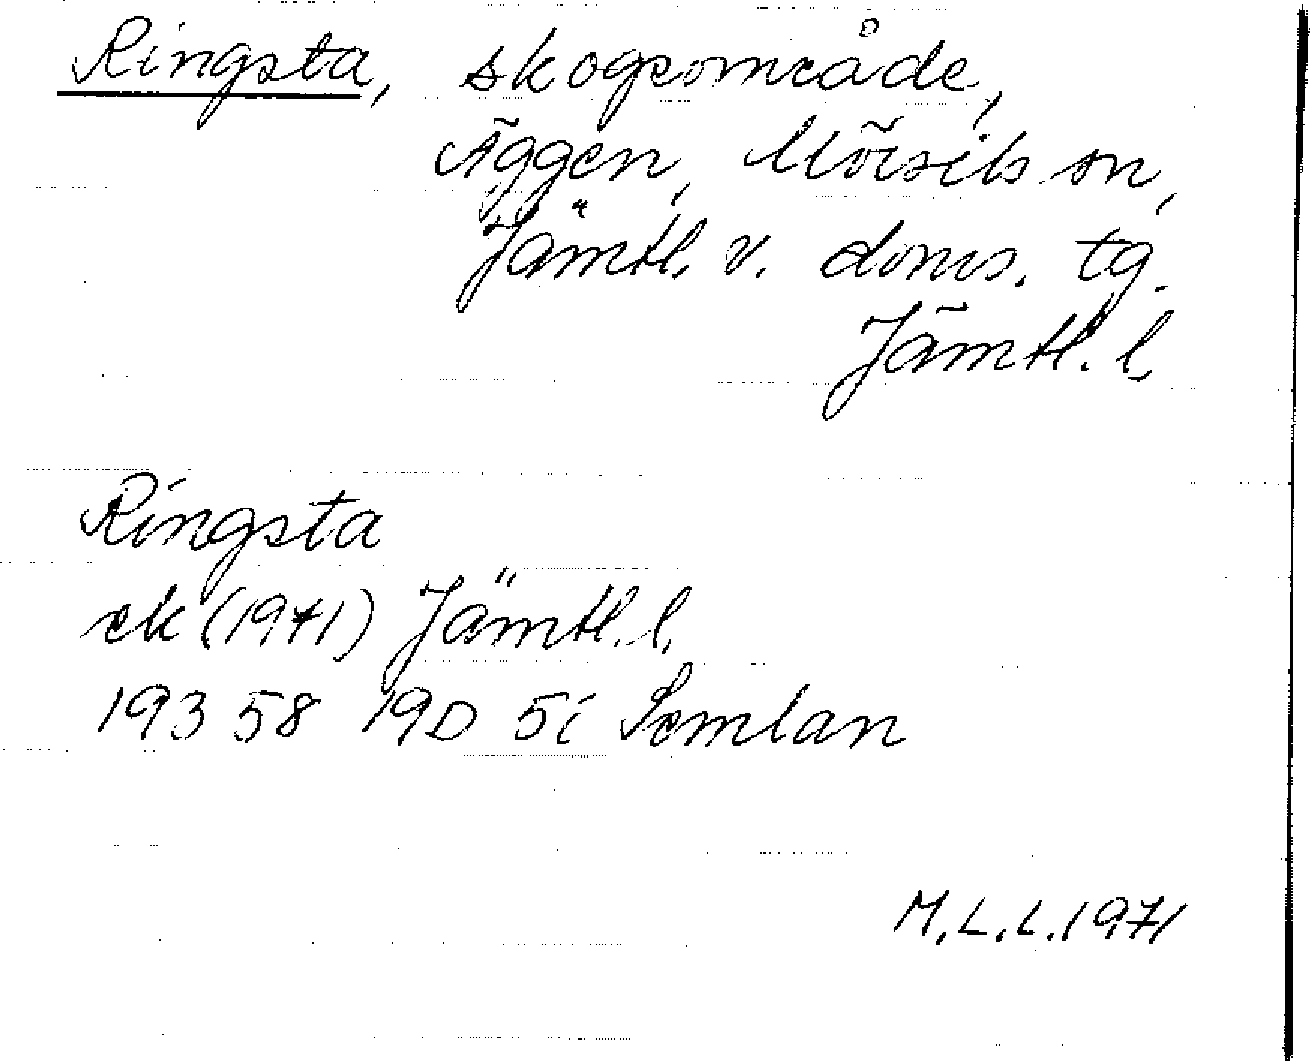 Ringsta, skogsområde,
Äggen, Mörsils sn,
Jämtl. v. doms. tg.
Jämtl. l.
Ringsta
ek (1971) Jämtl. l.
193 58 19D 5i Semlan
M.L.L. 1971